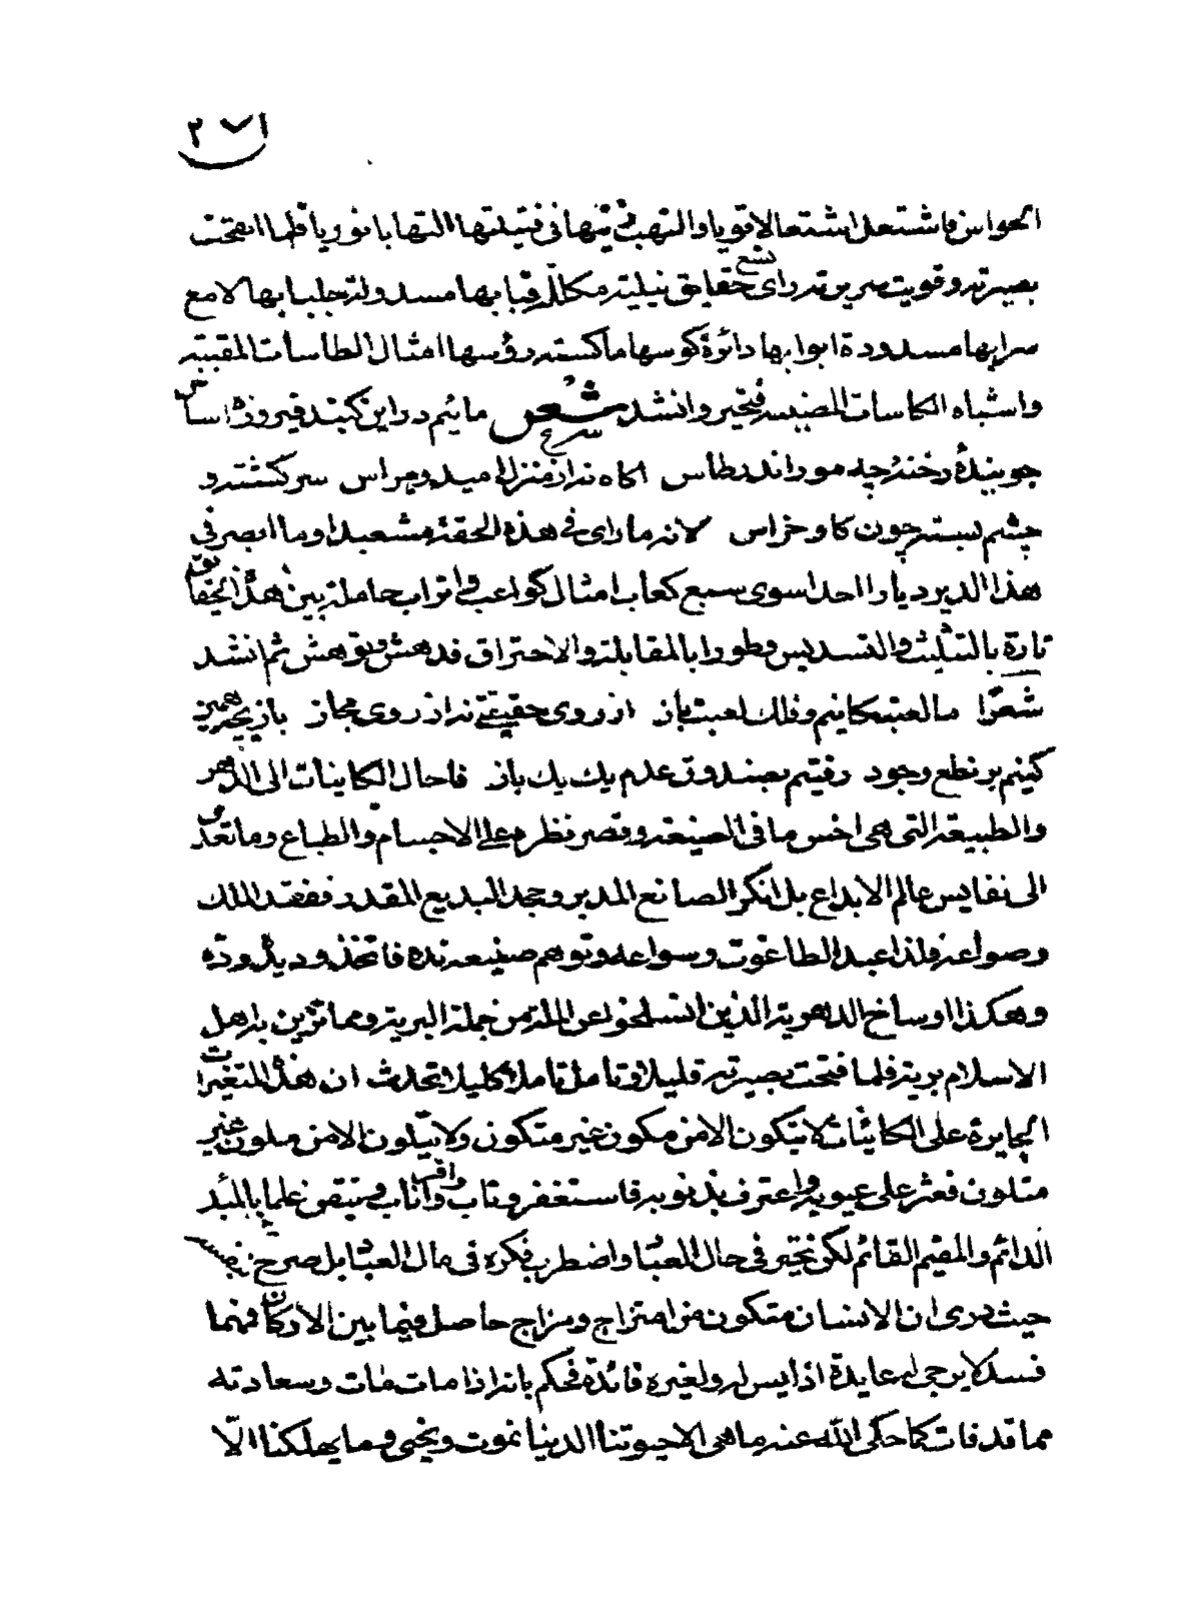 ٢٧١
الحواس فاشتعل اشتعالا قويا والتهب فتيتها فى فتيلتها التهابا نوريا فلما انفتحت
بصيرته وقويت سريرته راى تسع حقايق نيلية مكللة قبابها مسدولة جلبابها لامع
سرابها مسدودة ابوابها دائرة كوسها ماكسته رؤسها امثال الطاسات المقببة
واشباه الكاسات المضيئه فتحير وانشد شعر مائيم دراين كنبد فيروزه اساس
جوينده رخنه چه مور اندر طاس اكاه نه از منزل اميد وهراس سركشته و
چشم بسته چون كاو خراس لانه ما راى فى هذه الحقة مشعبدا وما ابصر فى
هذا الدير ديارا احدا سوى سبع كعاب امثال كواعب واتراب حاملة بين هذه الحقايق
تارة بالتثليث والتسديس وطورا بالمقابلة والاحتراق فدهش وتوهش ثم انشد
شعرا ما لعبتكانيم وفلك لعبت باز از روى حقيقتى نه از روى مجاز بازيچه همى
كنيم بر نطع وجود رفتيم بصندوق عدم يك يك باز فاحال الكاينات الى الدهر
والطبيعة التى هى اخس ما فى الصنيعة وقصر نظره على الاجسام والطباع وما تعدى
الى نفايس عالم الابداع بل انكر الصانع المدبر وجحد البديع المقدر ففقد الملك
وصواعه فلذا عبد الطاغوت وسواعه وتوهم صنيعه نده فاتخذ وديله وده
وهكذا اوساخ الدهرية الذين انسلخوا عن الملة من جملة البرية ومما تزين به اهل
الاسلام برية فلما فتحت بصيرته قليلا وتامل تاملا كليلا تحدث ان هذه المتغيرات
الجايرة على الكائنات لا يتكون الا من مكون غير متكون ولا يتلون الا من ملون غير
متلون فعثر على عيوبه واعترف بذنوبه فاستغفر وتاب واقر واناب وتيقن علما بالمبد
الدائم والمقيم القائم لكن تحير فى حال العباد واضطرب فكره فى مال العباد بل صرح
حيث درى ان الانسان متكون من امتزاج ومزاج حاصل فيما بين الاركان فمهما
فسد لا يرجى له عايدة اذا ليس له ولغيره فائدة فحكم بانه اذا مات مات وسعادته
مما قد فات كما حكى الله عنه ما هى الا حيوتنا الدنيا نموت ونحيى وما يهلكنا الا